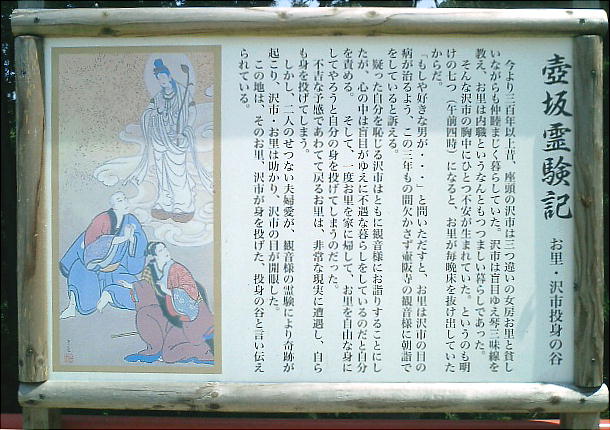 壺坂霊験記
お里・沢市投身の谷
今より三百年以上昔、座頭の沢市は三つ違いの女房お里と貧し
いながらも仲睦まじく暮らしていた。沢市は盲目ゆえ琴三味線を
教え、お里は内職というなんともつつましい暮らしであった。
そんな沢市の胸中にひとつ不安が生まれていた。というのも明
けの七つ（午前四時）になると、お里が毎晩床を抜け出していた
からだ。
「もしや好きな男が・・・」と問いただすと、お里は沢市の目の
病が治るよう、この三年もの間欠かさず壷阪寺の観音様に朝詣で
をしていると訴える。
疑った自分を恥じる沢市はともに観音様にお詣りすることにし
たが、心の中は盲目がゆえに不遇な暮らしをしているのだと自分
を責める。そして、一度お里を家に帰して、お里を自由な身に
してやろうと自分の身を投げてしまうのだった。
不吉な予感であわてて戻るお里は、非常な現実に遭遇し、自ら
も身を投げてしまう。
しかし、二人のせつない夫婦愛が、観音様の霊験により奇跡が
起こり、沢市・お里は助かり、沢市の目が開眼した。
この地は、そのお里、沢市が身を投げた、投身の谷と言い伝え
られている。